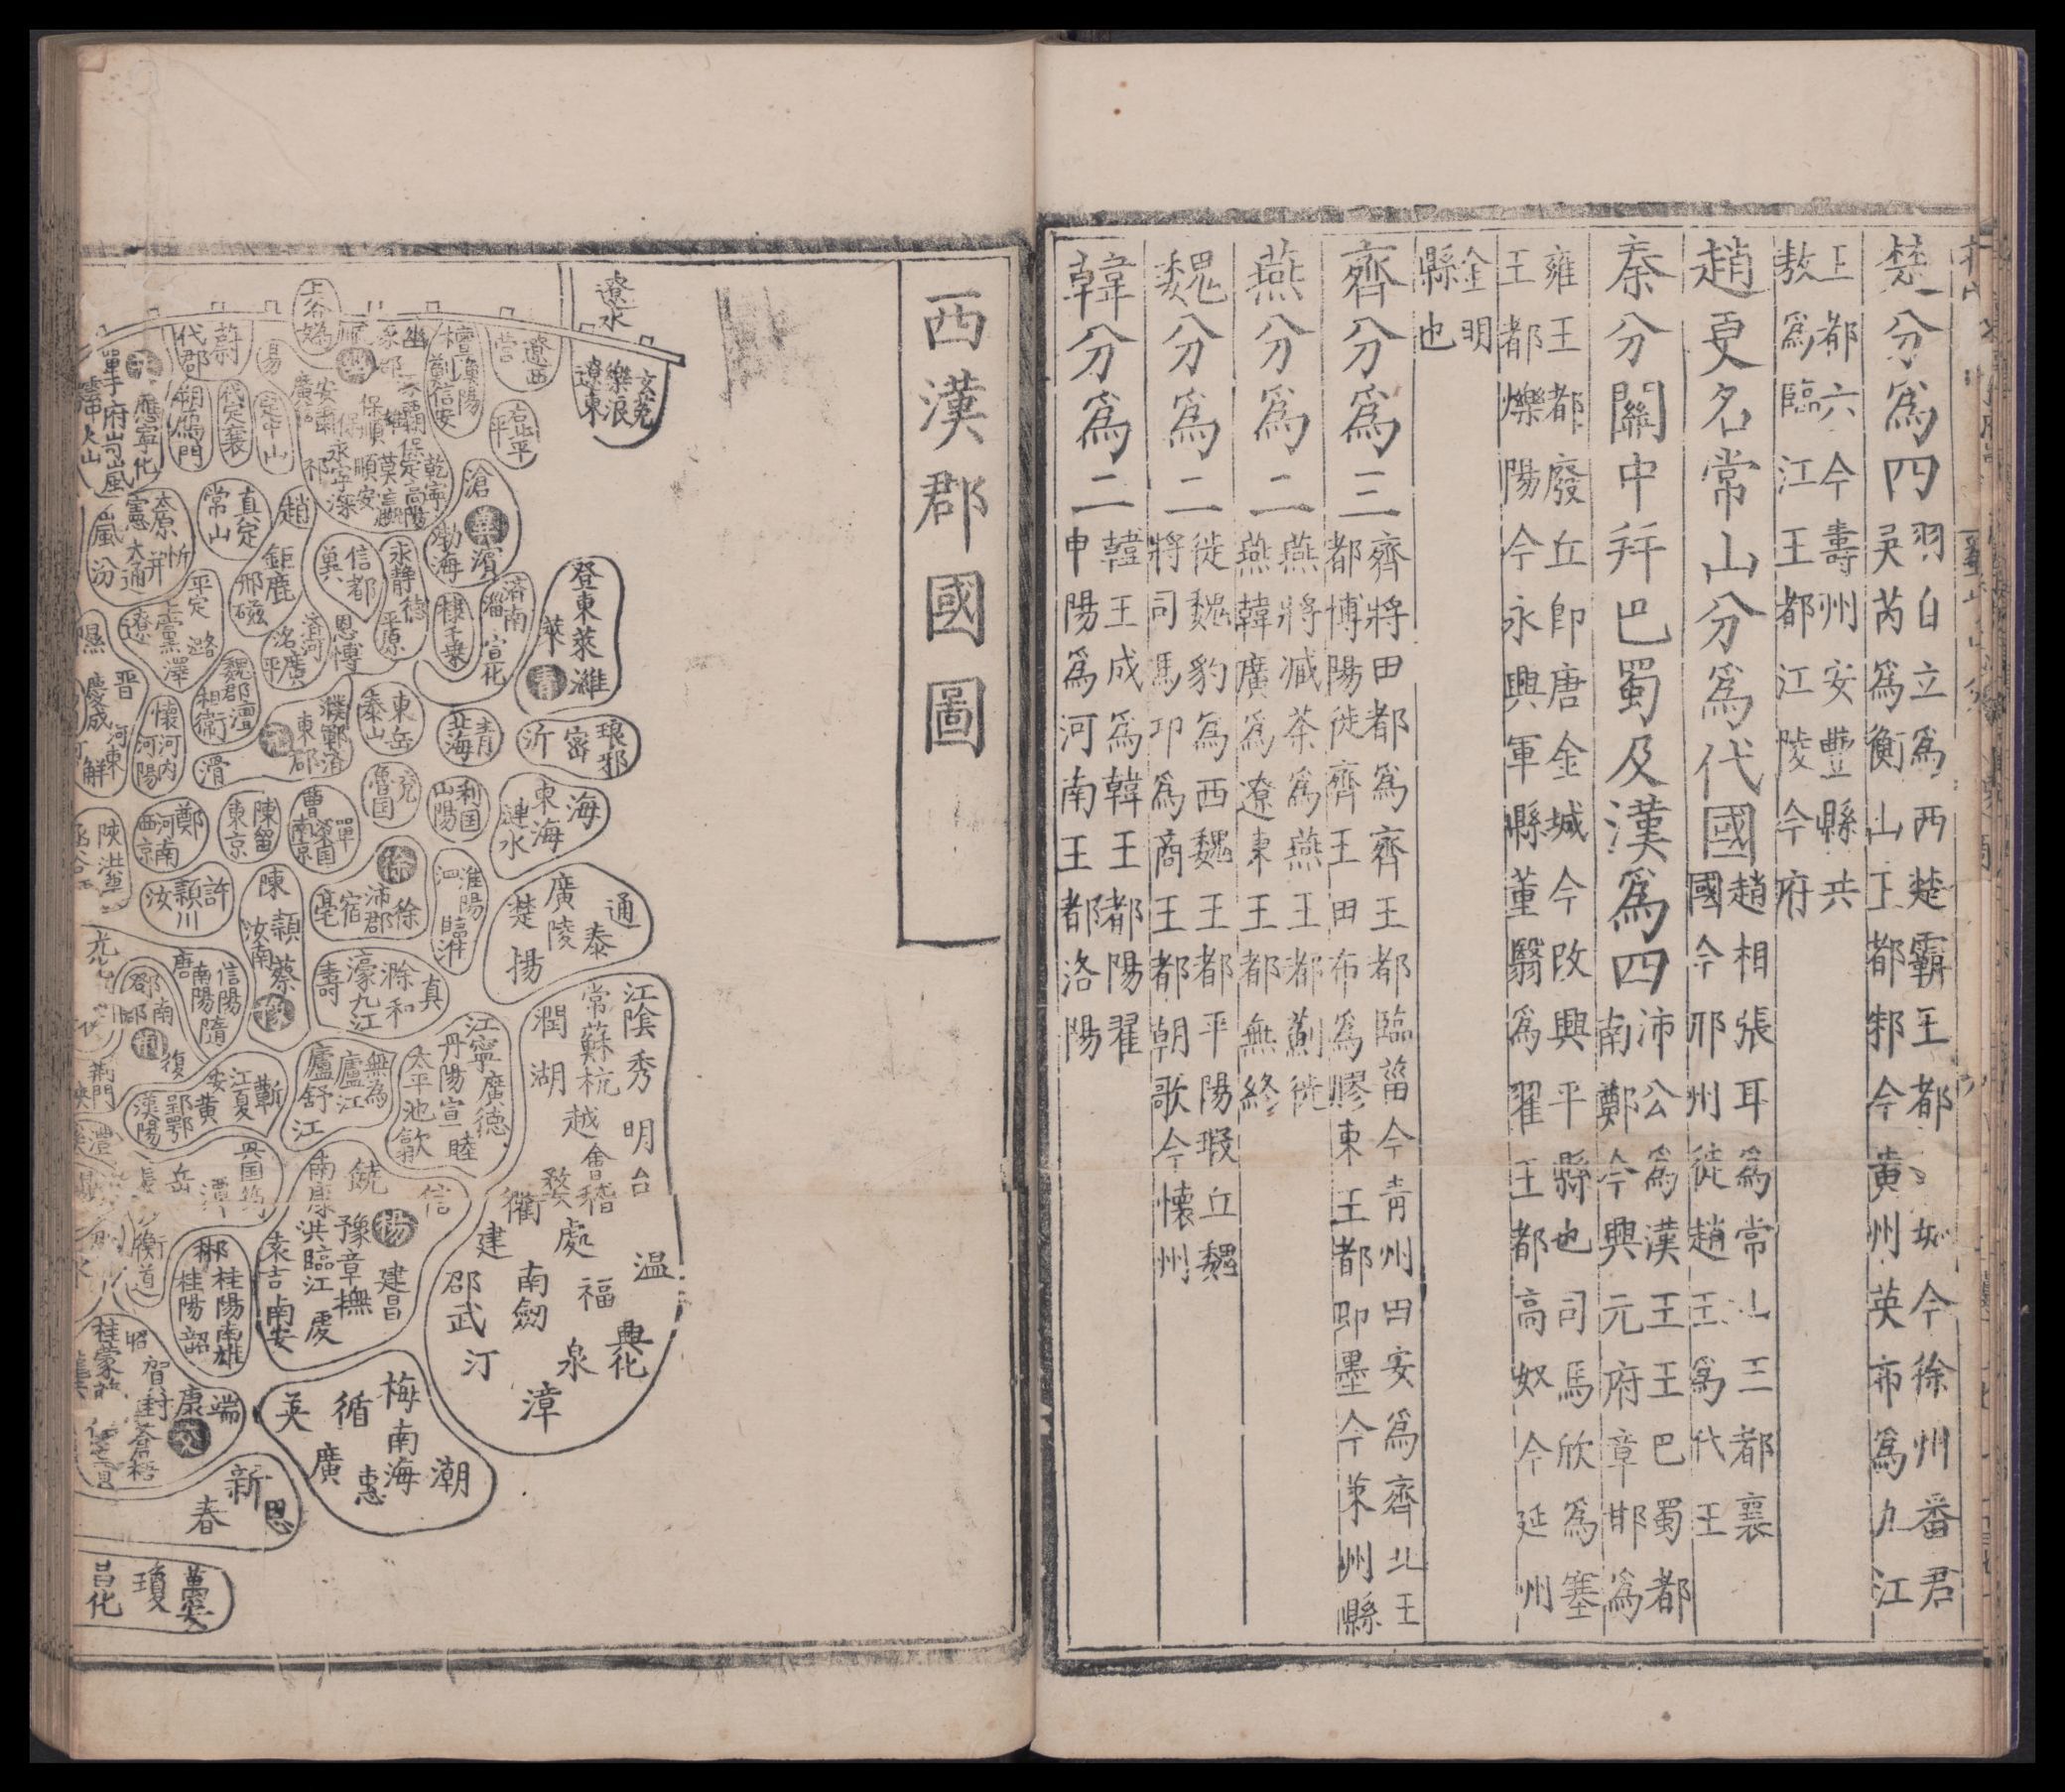 楚分為四
羽自立為西楚霸王都彭城今徐州番君
吳芮為衡山王都邾今黃州英布為九江
王都六今壽州安豐縣共
敖為臨江王都江陵今府
趙更名常山分為代國
趙相張耳為常山王都襄
國今邢州徙趙王王為代王
秦分關中幷巴蜀及漢為四
沛公為漢王王巴蜀都
南鄭今興元府章邯為
雍王都廢丘即唐金城今改興平縣也司馬欣為塞
王都爍陽今永興軍縣董翳為翟王都高奴今延州
金明
縣也
齊分為三
齊將田都為齊王都臨菑今青州田安為齊北王
都博陽徙齊王田布為膠東王都即墨今萊州縣
燕分為二
燕將臧荼為燕王都薊徙
燕韓廣為遼東王都無終
魏分為二
徙魏豹為西魏王都平陽瑕丘魏
將司馬卬為商王都朝歌今懷州
韓分為二
韓王成為韓王都陽翟
申陽為河南王都洛陽
西漢郡國圖
遼水
玄菟
樂浪
遼東
遼西
營
右北平
檀漁陽
薊信安
上谷
蔚
代郡
易
定中山
代定襄
朔馬門
應寧化
府岢嵐
火山
滄
渤海
濱
乾寧
保定高陽
順安
永寧
祁深
真定
常山
趙
鉅鹿
邢磁
信都
冀
永靜德
平原
棣千乘
濟南
淄
宣化
登東萊濰
萊
青
太原
憲
忻
并
大通
嵐
汾
平定
上黨澤
潞
遼
隰
洺廣平
恩博
魏郡澶
相衛
晋
慶成
河東
解
懷河內
河陽
滑
濮鄆濟
東郡
東岳
泰山
青
北海
琅邪
密
沂
海
東海
漣水
利国
山陽
兗
魯国
單
曹
南京
陳留
東京
鄭
河南
西京
陝
許
潁川
汝
陳
潁
汝南
蔡
豫
徐
徐
沛郡
宿
亳
淮陽
泗
臨淮
通
泰
廣陵
楚
揚
真
滁和
濠九江
壽
信陽
南陽隋
唐
鄧
南郡
荊
復
荊門
江陰秀明台
常蘇杭越會稽
潤湖
婺處
衢
建
邵武汀
南劍
福
泉
漳
温
興化
江寧廣德
丹陽宣
太平池歙
睦
無為
廬江
廬舒
江
蘄
江夏
安黃
鄂
漢陽
興国
岳
潭
澧
饒
信
南康
洪臨江
豫章撫
揚
建昌
袁吉南安
虔
衡
道
郴
桂陽
桂陽南雄
韶
桂蒙
昭
賀
封
蒼梧
康
端
交
梅
南海
潮
循
英
廣
惠
新
恩
春
萬安
瓊
昌化